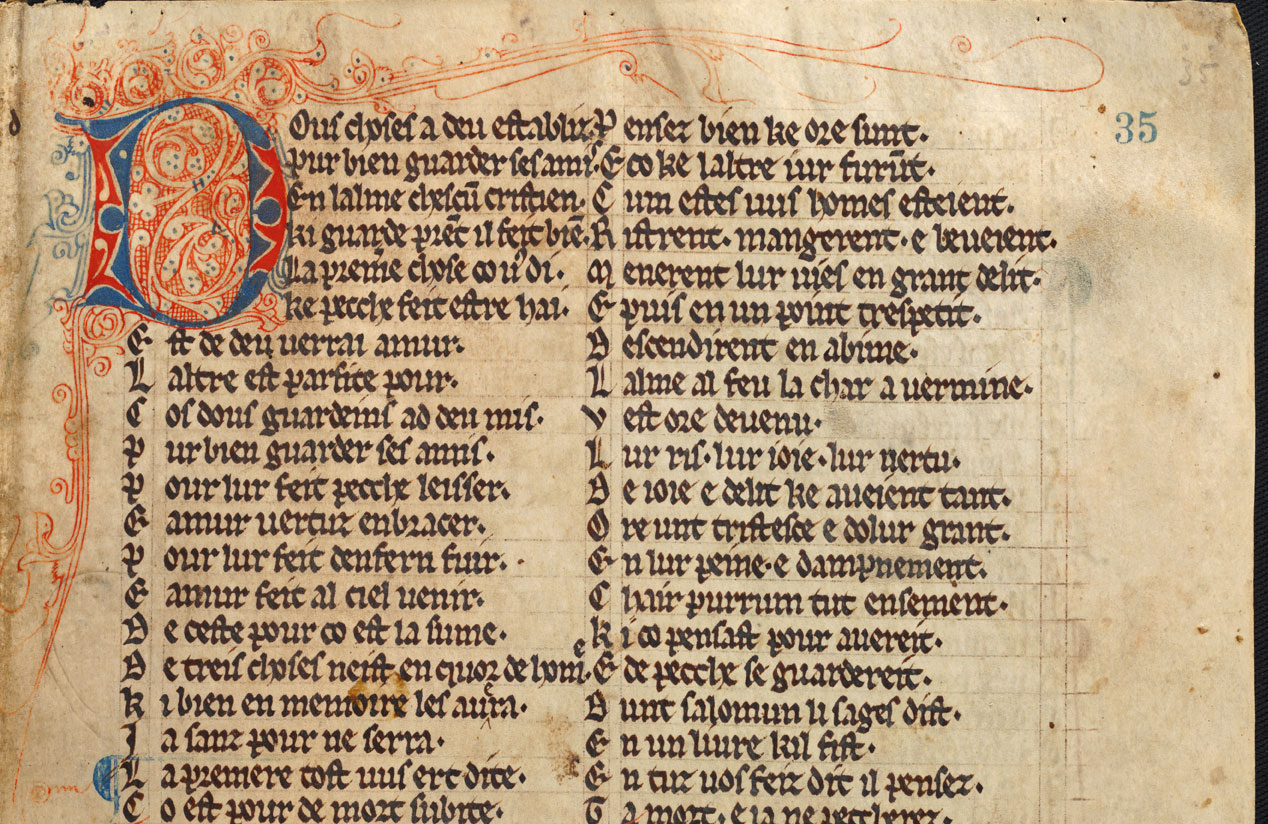 35
35
Dous choses a deu establiz
pur bien guarder ses amis.
En lalme chescū cristien.
ki guarde prēt il feit biē.
La preme chose co v⁹ di.
ke pecche feit estre hai.
E st de deu uerrai amur.
L altre est parfite pour.
C os dous guardeins ad deu mis.
P ur bien guarder ses amis.
P our lur feit pecche leisser.
E amur uertuz enbracer.
P our lur feit denfern fuir.
E amur feit al ciel uenir.
D e ceste pour co est la sume.
D e treis choses neist en quor de home
K i bien en memoire les aura.
J a sanz pour ne serra.
L a premere tost uus ert dite.
C o est pour de mort subite.
P ensez bien ke ore sunt.
E co ke laltre iur furūt.
C um estes uus homes esteient.
R istrent. mangerent. e beueient.
M enerent lur uies en grant delit.
E puis en un point trespetit.
D escendirent en abime.
L alme al feu la char a uermine.
V est ore deuenu.
L ur ris. lur ioie. lur uertu.
D e ioie e delit ke aueient tant.
O re unt tristesce e dolur grant.
E n lur peine. e dampnement.
C hair purrum tut ensement.
K i co pensast pour auereit.
E de pecche se guardereit.
D unt salomun li sages dist.
E n un liure kil fist.
E n tuz uos feiz dit il pensez.
T a mort. e ia ne peccherez.